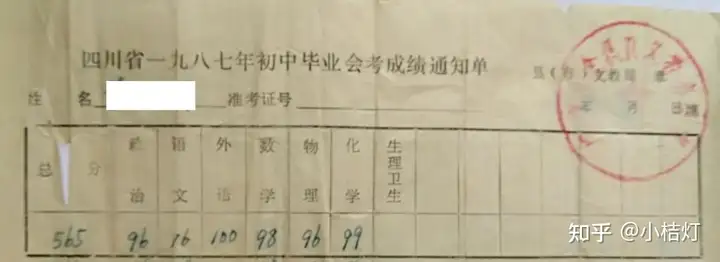 四川省一九八七年初中毕业会考成绩通知单
县(市)文教局 章
姓 名 准考证号
年 月 日填
总 分 政治 语文 外语 数学 物理 化学 生理卫生
565 96 76 100 98 96 99
知乎 @小桔灯